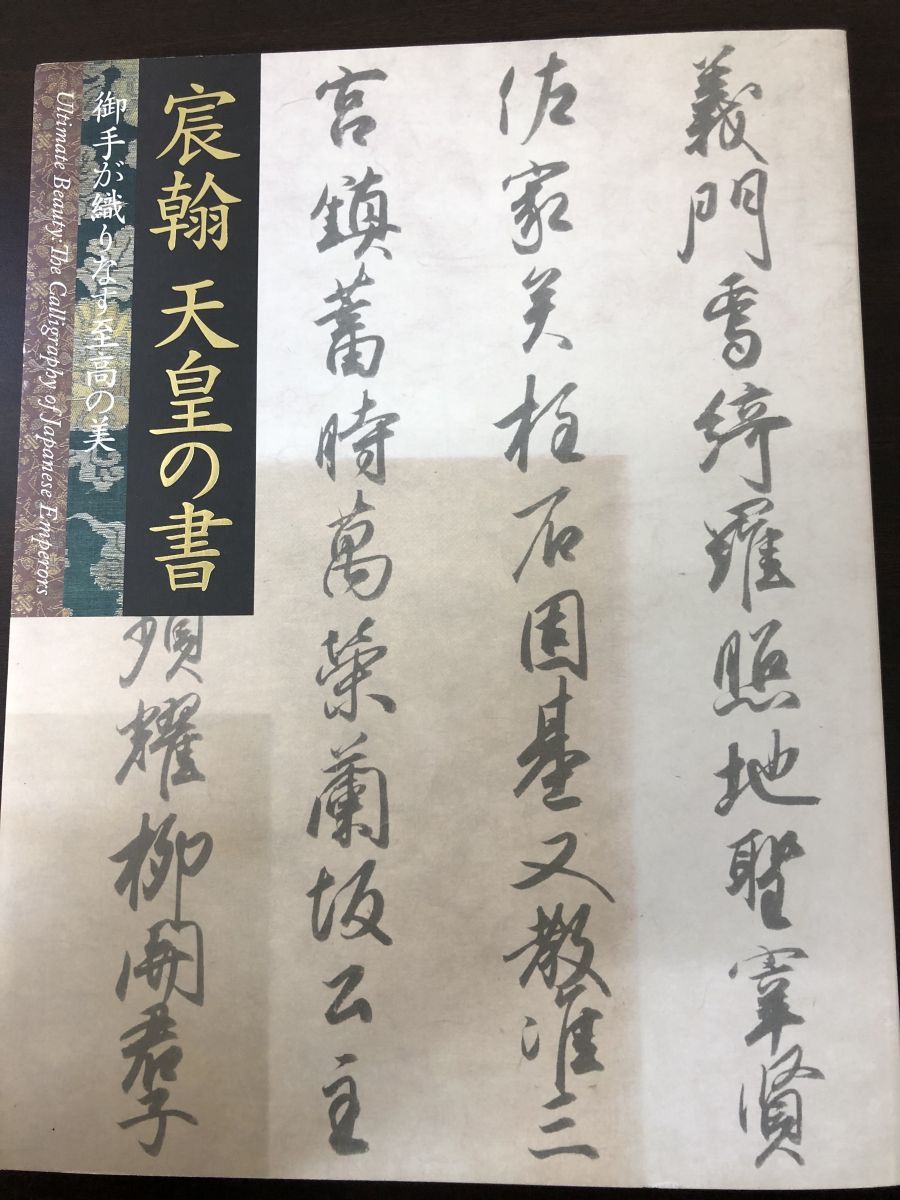 宸翰 天皇の書
御手が織りなす至高の美
Ultimate Beauty: The Calligraphy of Japanese Emperors
義門焉綺羅照地聖宰賢
佐家美柱石因基又教準三
宮鎮蓄時萬葉蘭坂公主
耀柳開君子